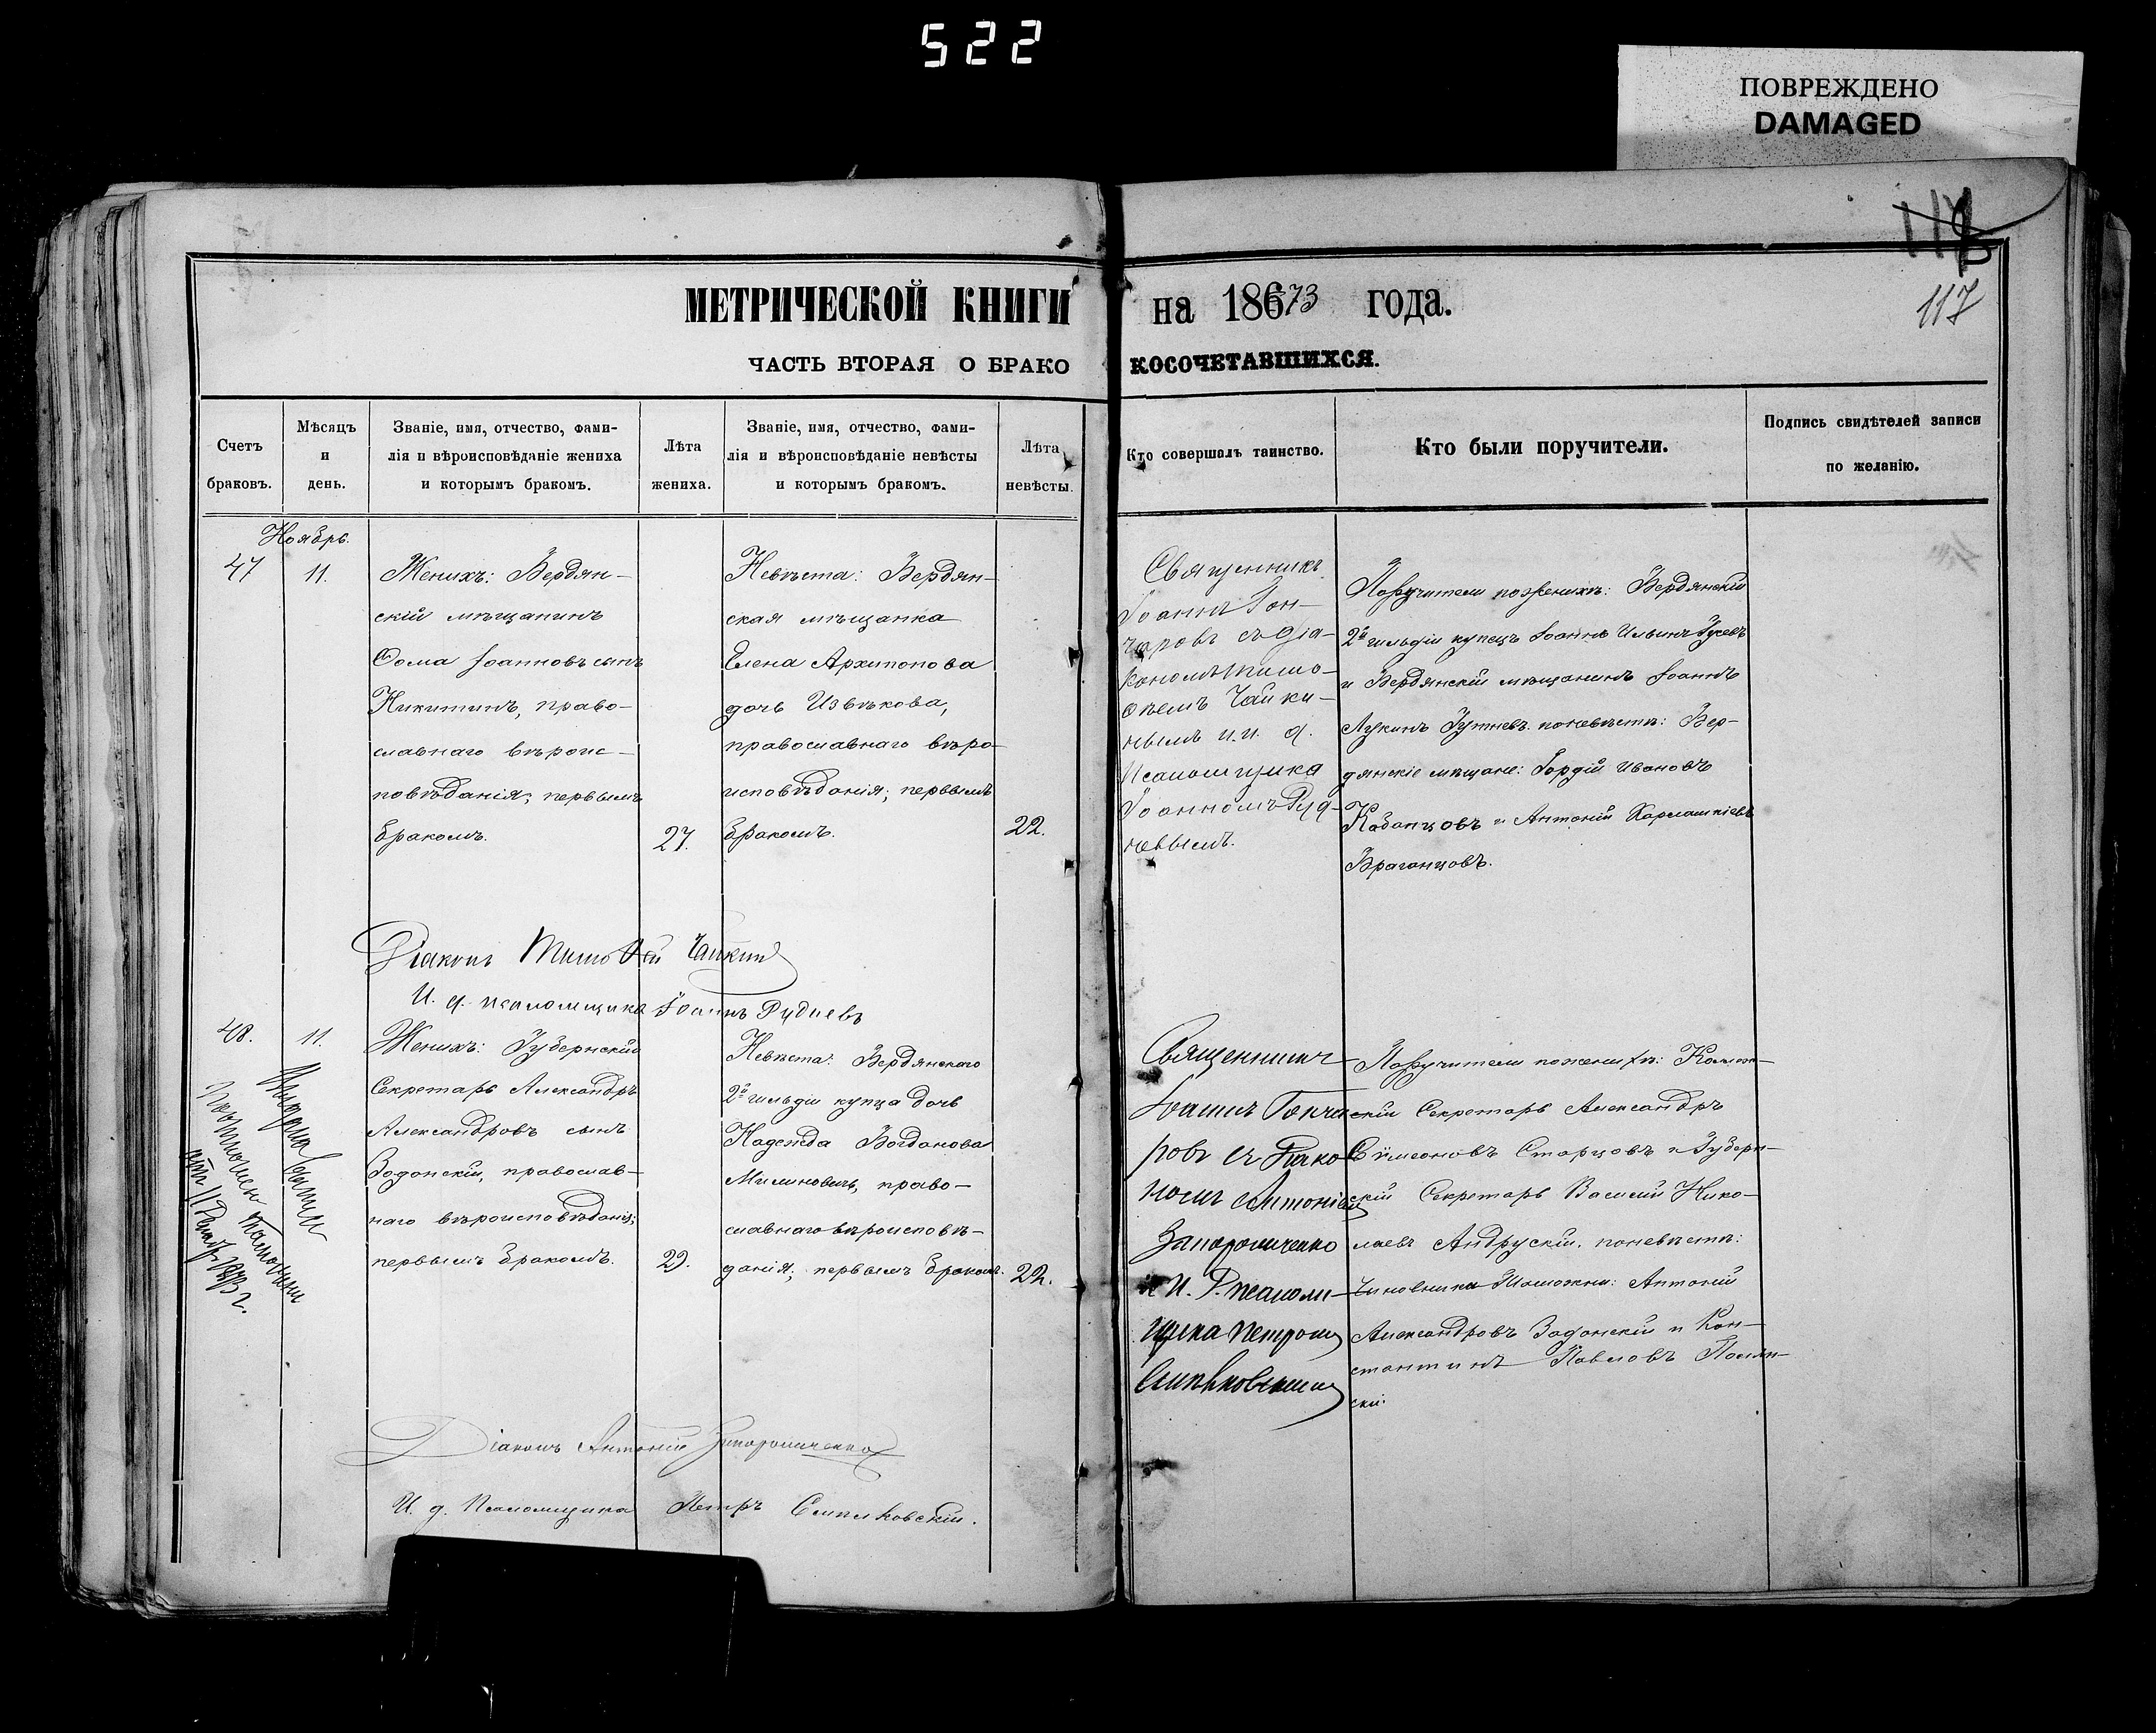 522
ПОВРЕЖДЕНО
DAMAGED
117
МЕТРИЧЕСКОЙ КНИГИ на 18673 года.
ЧАСТЬ ВТОРАЯ О БРАКОКОСОЧЕТАВШИХСЯ.
Счетъ
браковъ.
Мѣсяцъ
и
день.
Званіе, имя, отчество, фами-
лія и вѣроисповѣданіе жениха
и которымъ бракомъ.
Лѣта
жениха.
Званіе, имя, отчество, фами-
лія и вѣроисповѣданіе невѣсты
и которымъ бракомъ.
Лѣта
невѣсты.
Кто совершалъ таинство.
Кто были поручители.
Подпись свидѣтелей записи
по желанію.
Ноябрь.
47
11.
Женихъ: Бердян-
скій мѣщанинъ
Ѳома Іоанновъ сынъ
Никитинъ, право-
славнаго вѣроис-
повѣданія; первымъ
бракомъ.
27.
Невѣста: Бердян-
ская мѣщанка
Елена Архипопова
дочь Извѣкова,
православнаго вѣро-
исповѣданія; первымъ
бракомъ.
22.
Священникъ
Іоаннъ Гон-
чаровъ съ діа-
кономъ Тимо-
ѳеемъ Чайки-
нымъ и и. д.
Псаломщика
Іоанномъ Руд-
невымъ.
Поручители по женихѣ: Бердянскій
2й гильдіи купецъ Іоаннъ Ильинъ Гусевъ
и Бердянскій мѣщанинъ Іоаннъ
Лукинъ по невѣстѣ: Бер-
дянскіе мѣщане: Гордій Ивановъ
Кабанцовъ и Антоній
Браганцовъ.
Діаконъ Тимоѳей Чайкинъ
И. д. псаломщика Іоаннъ Рудневъ
48.
11.
Женихъ: Губернскій
Секретарь Александръ
Александровъ сынъ
Задонскій, православ-
наго вѣроисповѣданія;
первымъ бракомъ.
29.
Невѣста: Бердянскаго
2й гильдіи купца дочь
Надежда Богданова
Милиновичъ, право-
славнаго вѣроисповѣ-
данія; первымъ бракомъ.
22.
Священникъ
Іоаннъ Гонча-
ровъ съ Діако-
номъ Антоніемъ
Запорощенко
и И. Д. псалом-
щика Петромъ
Поручители по женихѣ: Коллеж-
скій Секретарь Александръ
Сѵмеоновъ Старцовъ и Губерн-
скій Секретарь Василій Нико-
лаевъ Андрускій. по невѣстѣ:
Чиновники Таможни: Антоній
Александровъ Задонскій и Кон-
стантинъ Павловъ Полян-
скій.
11 1873 г.
Діаконъ Антоній Запорощенко
И. д. Псаломщика Петръ